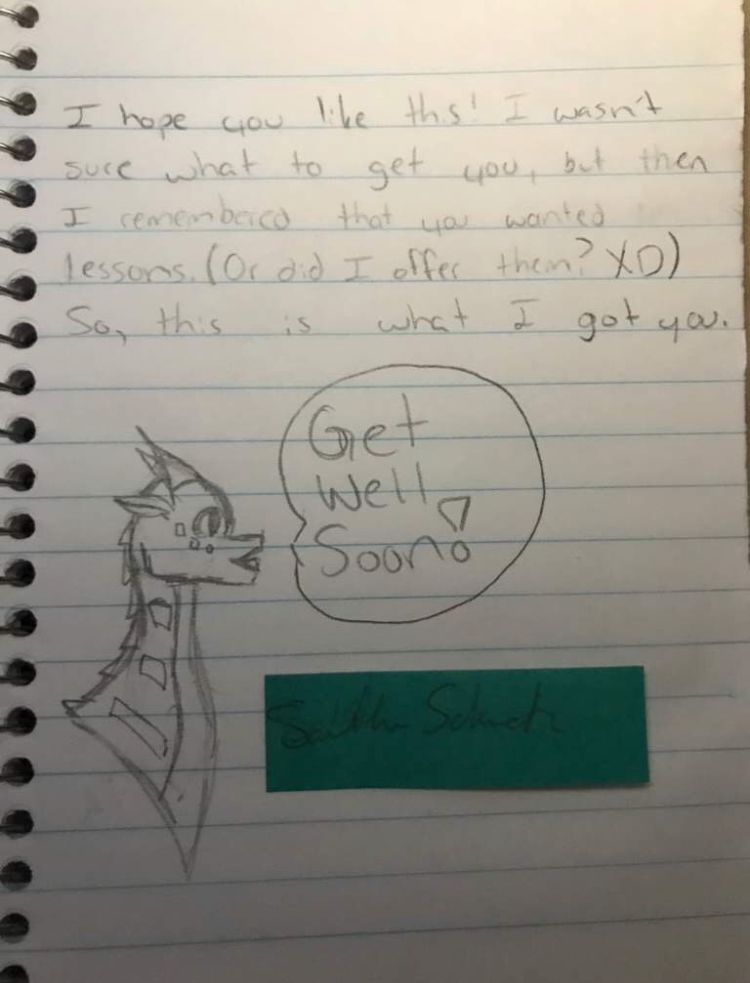 I hope you like this! I wasn't
sure what to get you, but then
I remembered that you wanted
lessons. (Or did I offer them? XD)
So, this is what I got you.
Get
Well
Soon!